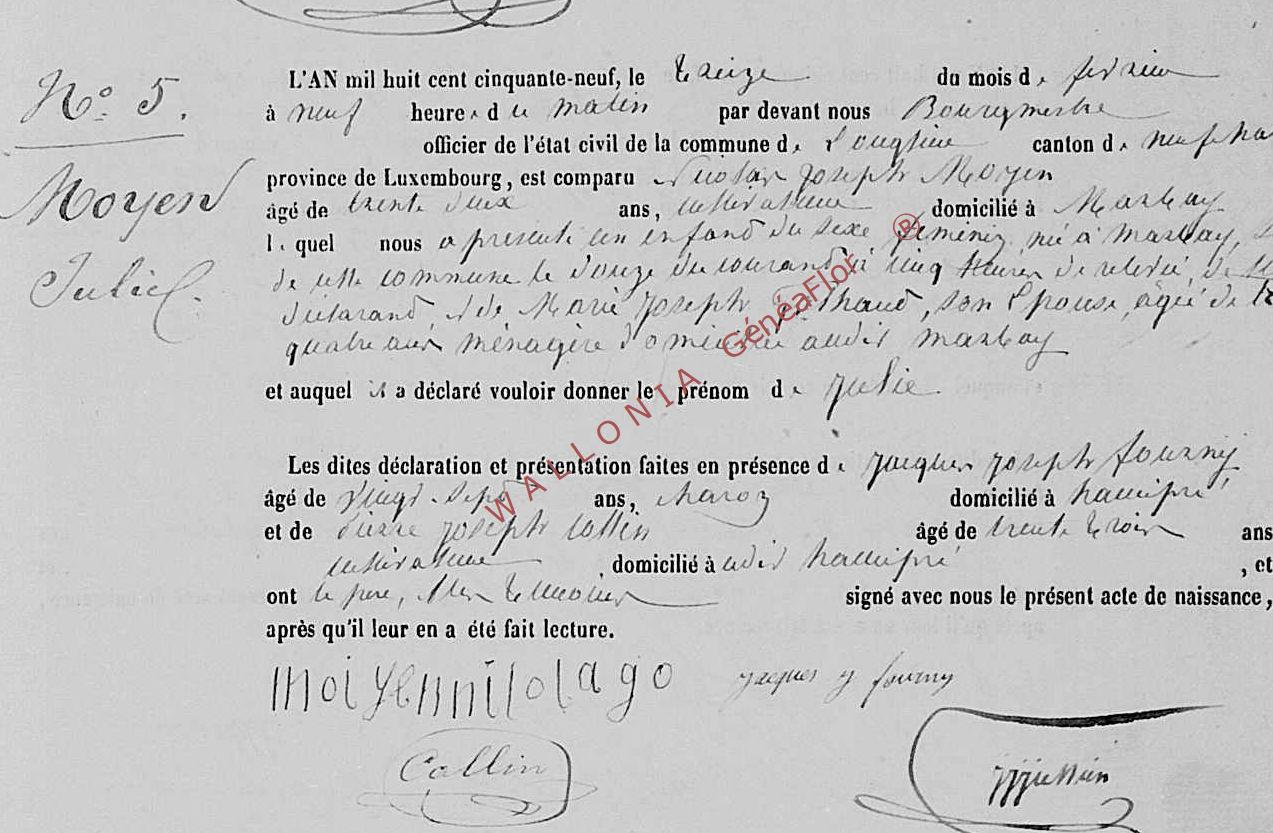 N.º 5.
Moyen
Julie
L'AN mil huit cent cinquante-neuf, le treize du mois de février
à neuf heures du matin par devant nous Bourgmestre
officier de l'état civil de la commune de canton de neufcha
province de Luxembourg, est comparu Nicolas Joseph Moyen
âgé de trente deux ans, cultivateur domicilié à Marbay
lequel nous a présenté un enfant du sexe féminin, né à Marbay,
de cette commune le douze du courant à cinq heures de relevée, de
déclarant, et de Marie Joseph son Epouse, âgée de
quatre ans ménagère domiciliée audit Marbay
et auquel il a déclaré vouloir donner le prénom de Julie
Les dites déclaration et présentation faites en présence de Jacques Joseph fourny
âgé de vingt-sept ans, domicilié à hamipré
et de Pierre Joseph Collin âgé de trente trois ans
cultivateur, domicilié à audit hamipré, et
ont le père, et les témoins signé avec nous le présent acte de naissance,
après qu'il leur en a été fait lecture.
jacques j fourny
Collin
WALLONIA GénéaFlor ®